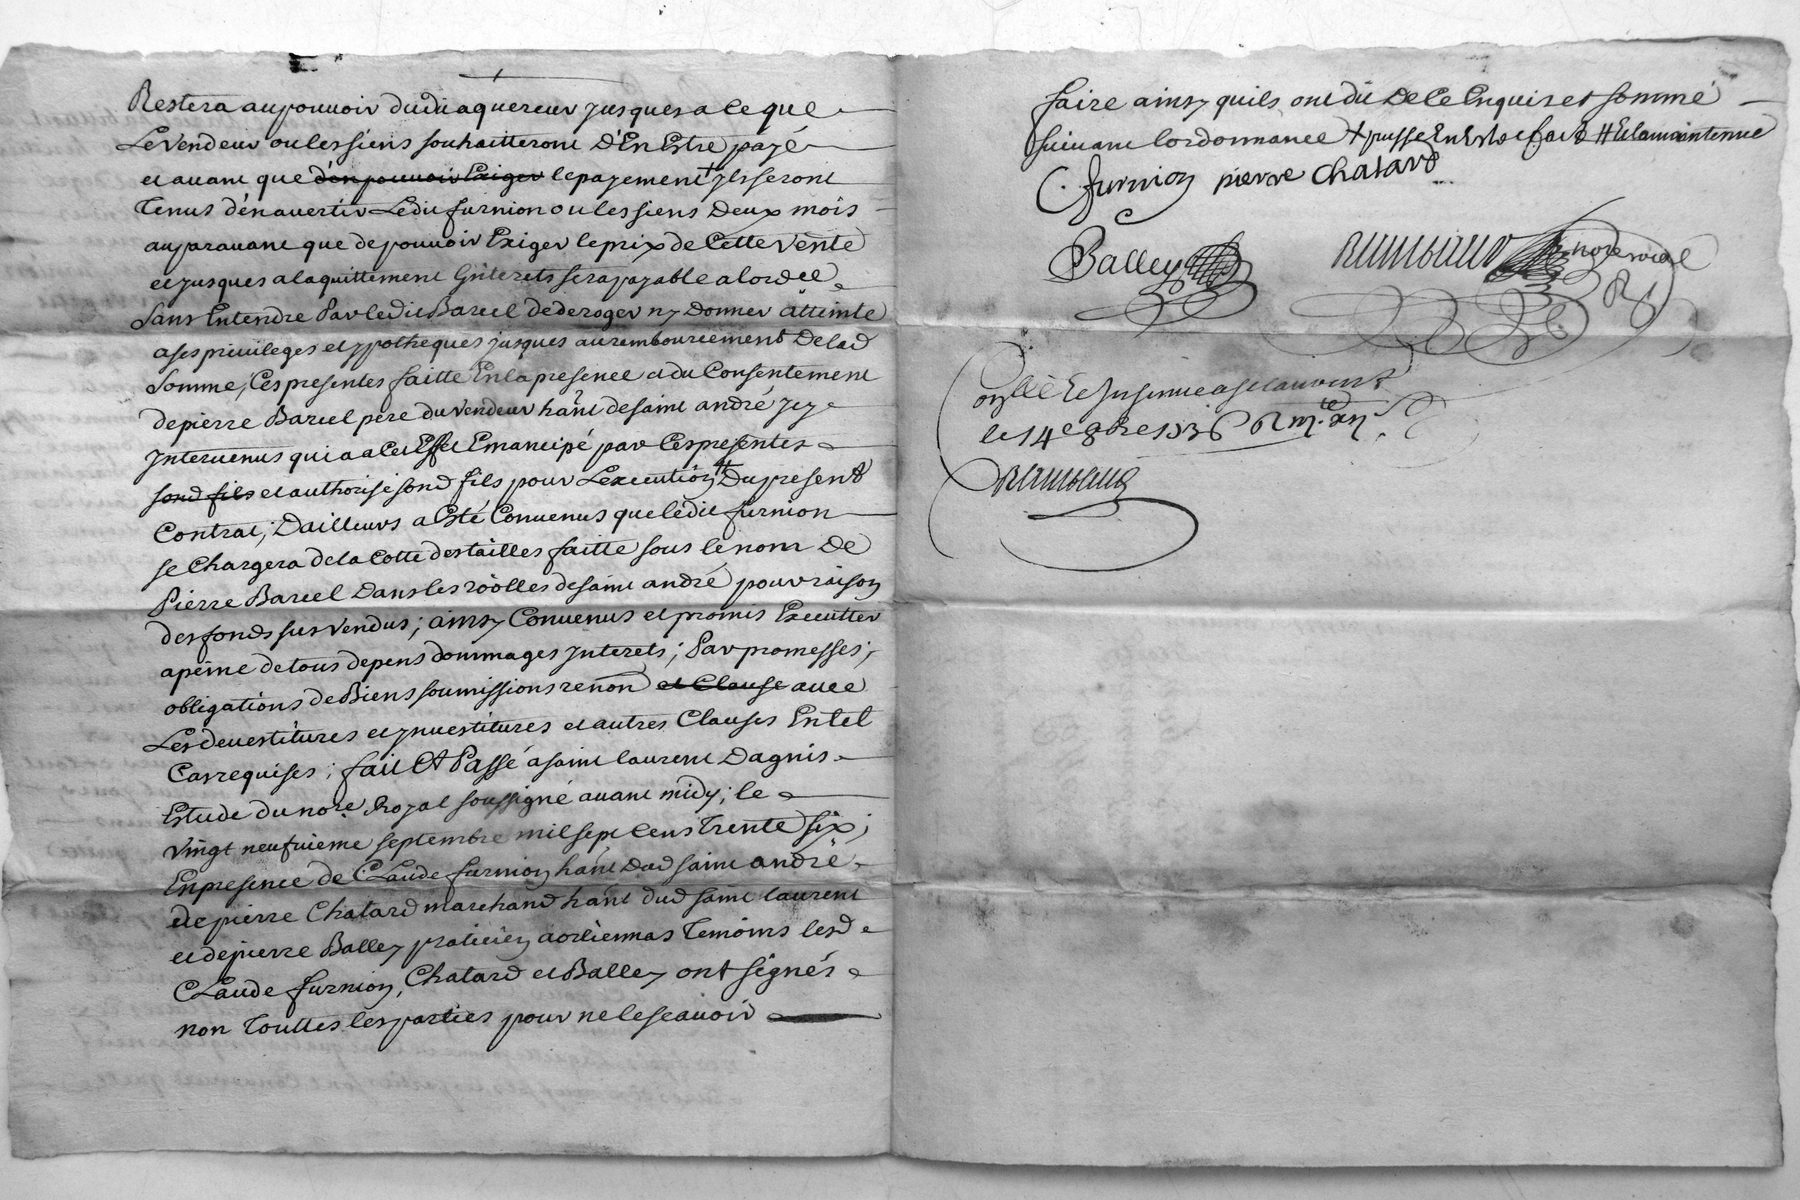 Restera aupouuoir dudit aquereur Jusques a ce que
Le vendeur ou les siens souhaitteront D'En Estre payé
et auant que d'en pouuoir Exiger le payement + Jls seront
Tenus d'en auertir Ledit furnion ou les siens Deux mois
auparauant que de pouuoir Exiger le prix de Cette vente
et Jusques alaquittement Ginterets sera payable
Sans Entendre Par ledit Barcel de deroger ny Donner atteinte
a ses priuileges et ypotheques jusques au remboursement De lad
Somme, Ces presentes faitte En la presence et du Consentement
de pierre Barcel pere du vendeur hānt de saint andré Jcy
Jnteruenus qui a a cet Effet Emancipé par Ces presentes
sond fils et authorisé sond fils pour L'execution # Du present
Contrat; D'ailleurs a Esté Conuenus que ledit furnion
se Chargera de la Cotte des tailles faitte sous le nom De
Pierre Barcel Dans les roolles de saint andré pour raison
des fonds sus vendus; ainsy Conuenus et promis Executter
a peine de tous depens dommages Jnterets; Par promesses;
obligations de Biens soumissions renon et Clause auec
Les deuestitures et Jnuestitures et autres Clauses En tel
Cas requises; fait Et Passé a saint laurent Dagnis
Estude du nore Royal soussigné auant midy; le
vingt neufuieme septembre mil sept Cens Trente six;
En presence de Claude furnion hānt Dud saint andré
de pierre Chatard marchand hānt dud saint laurent
et de pierre Balley praticien Temoins lesd
Claude furnion, Chatard et Balley ont signés
non Touttes les parties pour ne le scauoir
faire ainsy quils ont dit De Ce Enquis et sommé
suiuant lordonnance + puisse Estre # Et la maintenue
C. furnion pierre Chatard
Balley Rambaud nore royal
le 14e 8bre 1736
Rambaud